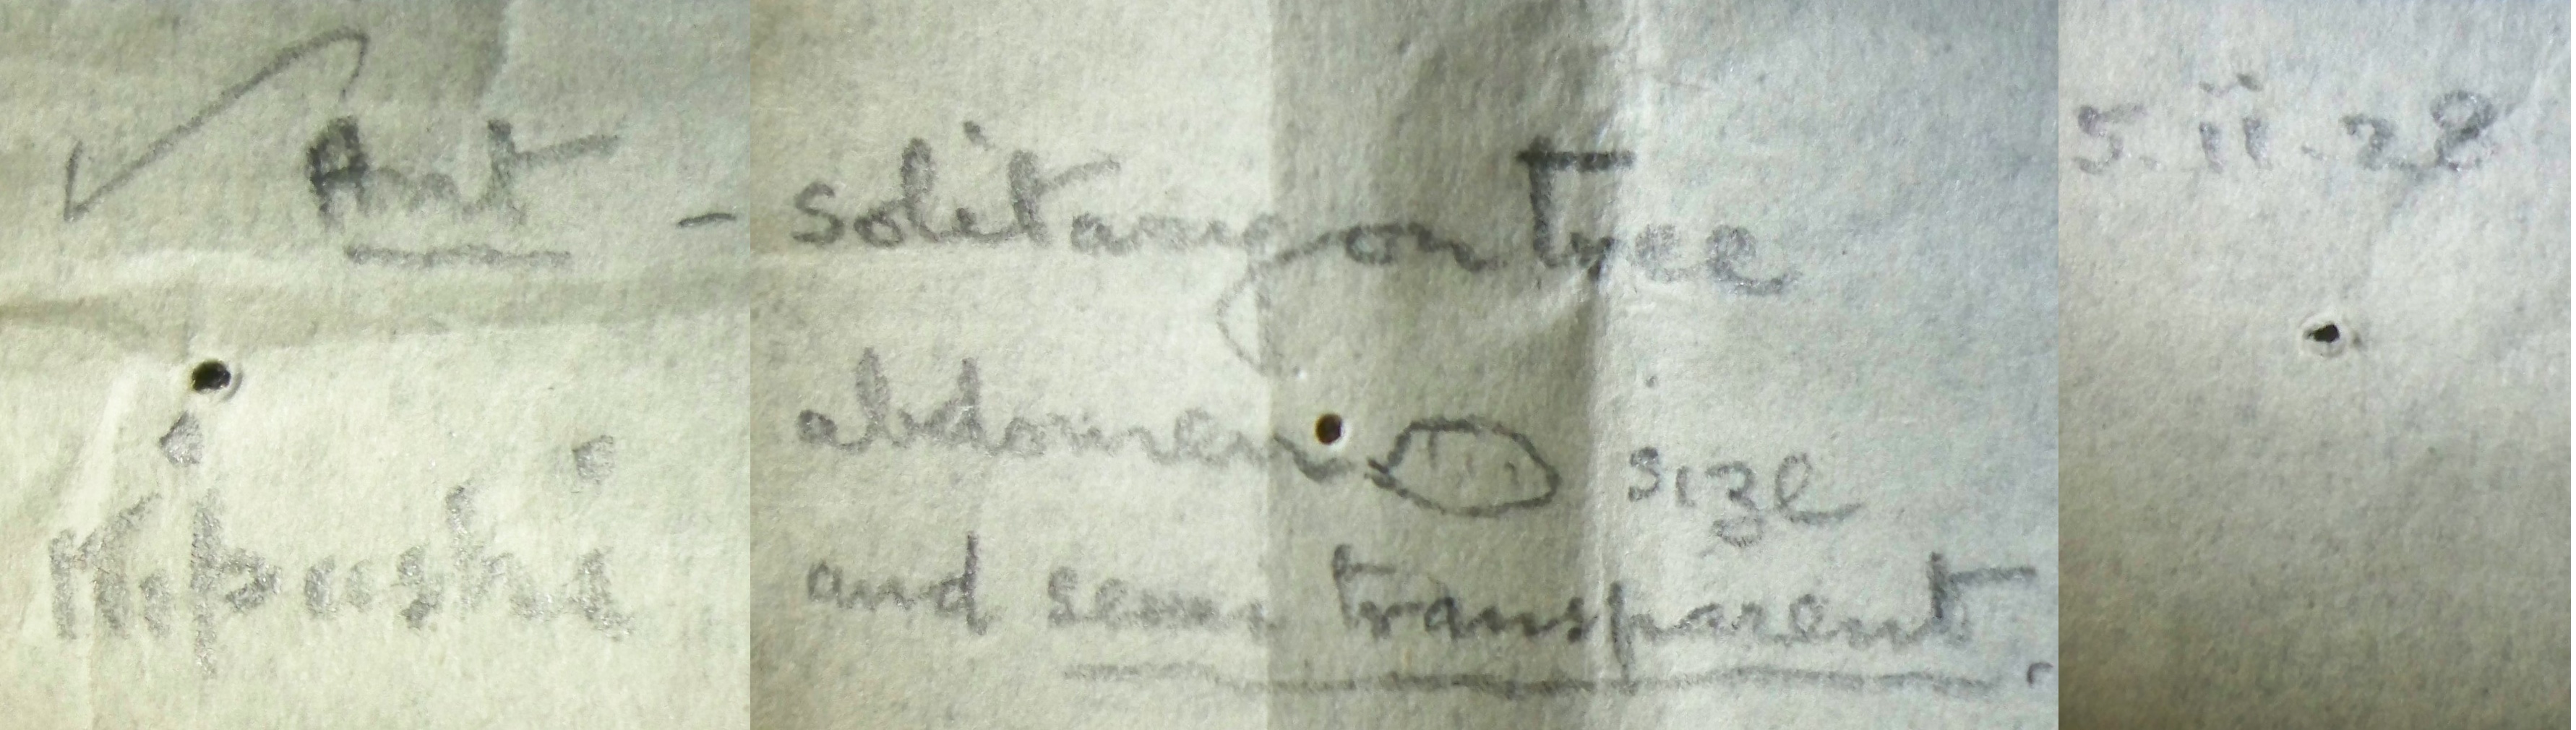 Ant - solitary on Tree 5.ii.28
abdomen size
Kipushi and semi transparent.